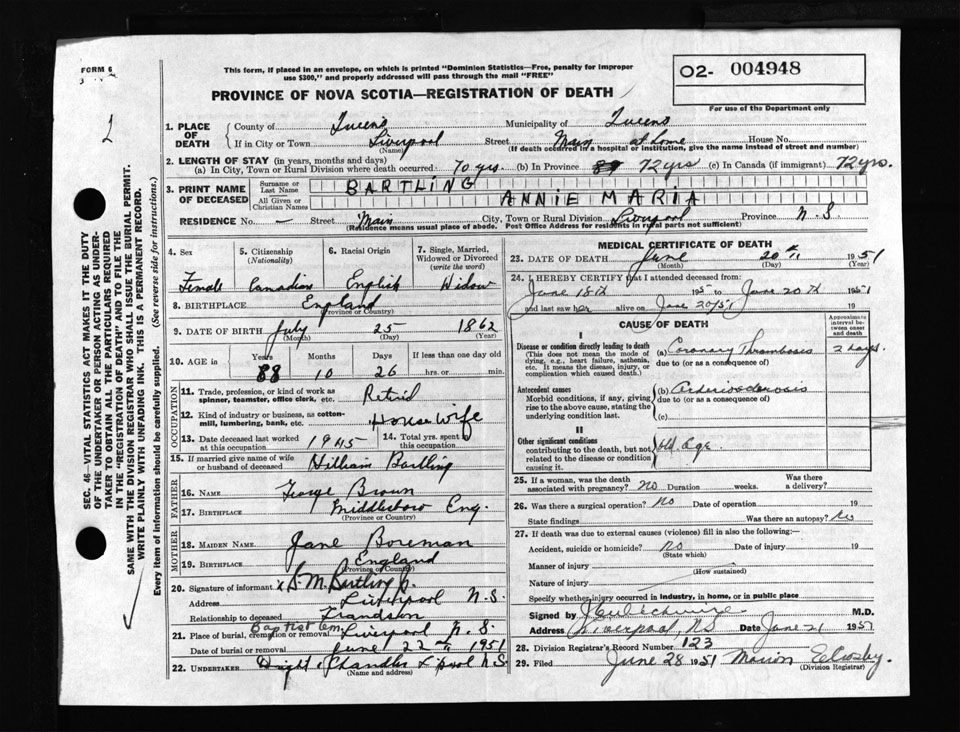 FORM 6
This form, if placed in an envelope, on which is printed "Dominion Statistics—Free, penalty for improper
use $300," and properly addressed will pass through the mail "FREE"
O2- 004948
For use of the Department only
PROVINCE OF NOVA SCOTIA—REGISTRATION OF DEATH
1. PLACE OF DEATH
County of Queens Municipality of Queens
If in City or Town Liverpool Street Main at home House No.
(Name) (If death occurred in a hospital or institution, give the name instead of street and number)
2. LENGTH OF STAY (in years, months and days)
(a) In City, Town or Rural Division where death occurred: 70 yrs. (b) In Province 72 yrs (c) In Canada (if immigrant) 72 yrs.
3. PRINT NAME OF DECEASED
Surname or Last Name BARTLING
All Given or Christian Names ANNIE MARIA
RESIDENCE No. — Street Main City, Town or Rural Division Liverpool Province N.S.
(Residence means usual place of abode. Post Office Address for residents in rural parts not sufficient)
4. Sex
Female
5. Citizenship (Nationality)
Canadian
6. Racial Origin
English
7. Single, Married, Widowed or Divorced (write the word)
Widow
8. BIRTHPLACE England
(Province or Country)
9. DATE OF BIRTH July 25 1862
(Month) (Day) (Year)
10. AGE in Years Months Days If less than one day old
88 10 26 hrs. or min.
OCCUPATION
11. Trade, profession, or kind of work as spinner, teamster, office clerk, etc. Retired
12. Kind of industry or business, as cotton-mill, lumbering, bank, etc. House Wife
13. Date deceased last worked at this occupation 1945
14. Total yrs. spent in this occupation
15. If married give name of wife or husband of deceased William Bartling
FATHER
16. NAME George Brown
17. BIRTHPLACE Middlesboro Eng.
(Province or Country)
MOTHER
18. MAIDEN NAME Jane Boreman
19. BIRTHPLACE England
(Province or Country)
20. Signature of informant x S.M. Bartling Jr.
Address Liverpool N.S.
Relationship to deceased Grandson
21. Place of burial, cremation or removal Baptist Cem. Liverpool N.S.
Date of burial or removal June 22 1951
22. UNDERTAKER Dwight & Chandler L'pool N.S.
(Name and address)
MEDICAL CERTIFICATE OF DEATH
23. DATE OF DEATH June 20th 1951
(Month) (Day) (Year)
24. I HEREBY CERTIFY that I attended deceased from:
June 18th 195 to June 20th 1951
and last saw her alive on June 20/51 19
CAUSE OF DEATH
Approximate interval between onset and death
I
Disease or condition directly leading to death
(This does not mean the mode of dying, e.g., heart failure, asthenia, etc. It means the disease, injury, or complication which caused death.)
(a) Coronary Thrombosis 2 days
due to (or as a consequence of)
Antecedent causes
Morbid conditions, if any, giving rise to the above cause, stating the underlying condition last.
(b) Arteriosclerosis
due to (or as a consequence of)
(c)
II
Other significant conditions
contributing to the death, but not related to the disease or condition causing it.
Old Age
25. If a woman, was the death associated with pregnancy? No Duration weeks. Was there a delivery?
26. Was there a surgical operation? No Date of operation 19
State findings Was there an autopsy? No
27. If death was due to external causes (violence) fill in also the following:—
Accident, suicide or homicide? no Date of injury 19
(State which)
Manner of injury
(How sustained)
Nature of injury
Specify whether injury occurred in industry, in home, or in public place
Signed by M.D.
Address Liverpool, N.S. Date June 21 1951
28. Division Registrar's Record Number 123
29. Filed June 28 1951 Marion
(Division Registrar)
SEC. 46—VITAL STATISTICS ACT MAKES IT THE DUTY
OF THE UNDERTAKER OR PERSON ACTING AS UNDER-
TAKER TO OBTAIN ALL THE PARTICULARS REQUIRED
IN THE "REGISTRATION OF DEATH" AND TO FILE THE
SAME WITH THE DIVISION REGISTRAR WHO SHALL ISSUE THE BURIAL PERMIT.
WRITE PLAINLY WITH UNFADING INK. THIS IS A PERMANENT RECORD.
Every item of information should be carefully supplied. (See reverse side for instructions.)